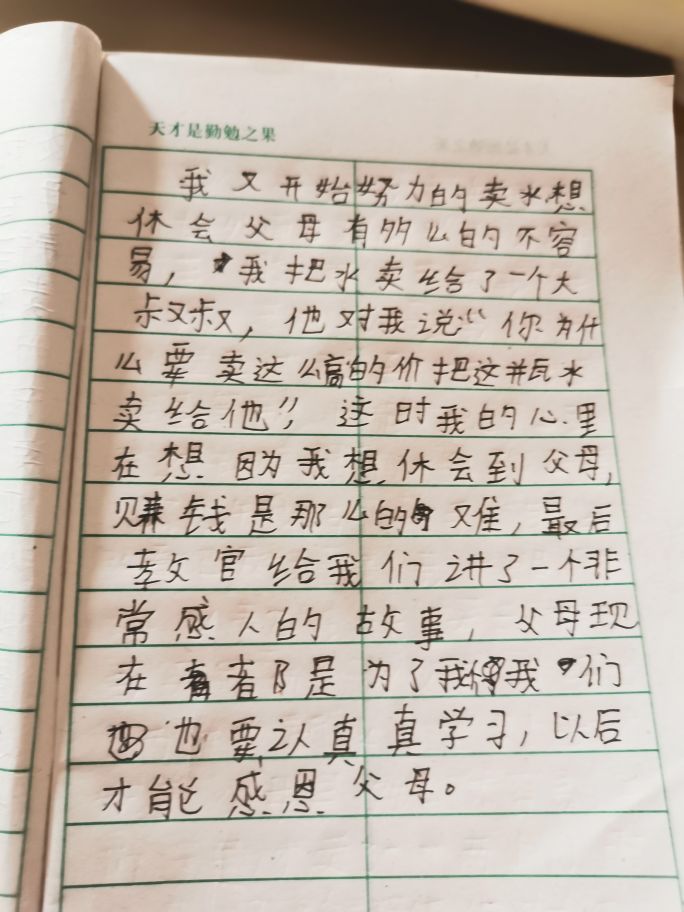 天才是勤勉之果
我又开始努力的卖水想
休会父母有多么的不容
易，我把水卖给了一个大
叔叔，他对我说“你为什
么要卖这么高的价把这瓶水
卖给他”这时我的心里
在想因为我想休会到父母，
赚钱是那么的难，最后
孝文官给我们讲了一个非
常感人的故事，父母现
在都是为了我们
也要认真真学习，以后
才能感恩父母。